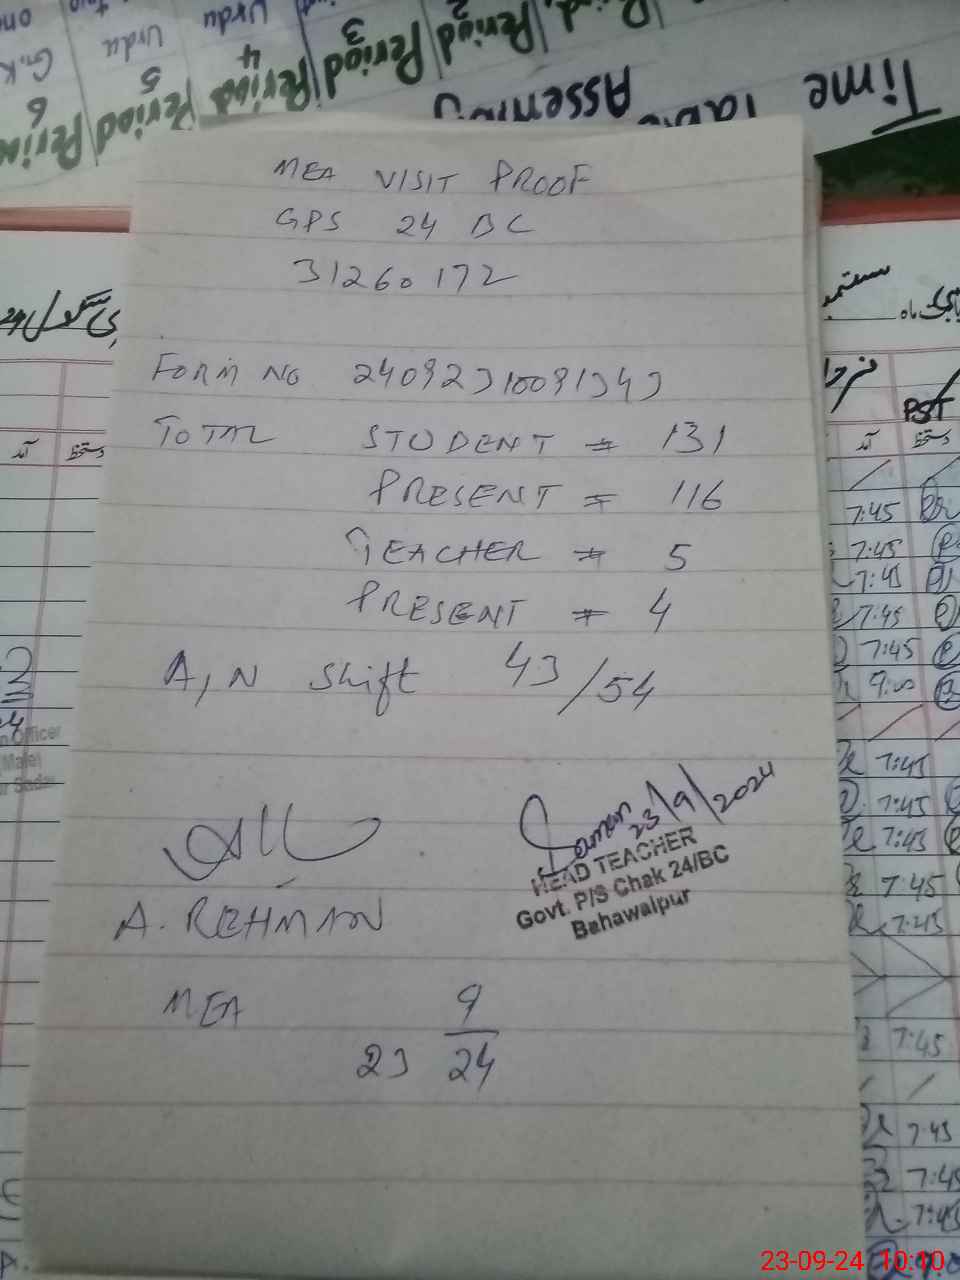 Time Table
Assembly
Period Period Period Period Period
2 3 4 5 6
Urdu Urdu G.K
MEA VISIT PROOF
GPS 24 BC
31260172
FORM NO 24092310091343
TOTAL STUDENT = 131
PRESENT = 116
TEACHER = 5
PRESENT = 4
A,N Shift 43/54
Saman
23/9/2024
HEAD TEACHER
Govt. P/S Chak 24/BC
Bahawalpur
A. REHMAN
MEA
23 9/24
ستمبر
PST
آمد دستخط
آمد دستخط
7:45
7:45
7:45
7:45
7:45
9:00
7:45
7:45
7:45
7:45
7:45
7:45
7:45
7:45
7:45
Officer
(Male)
23-09-24 10:10